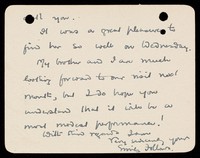 you.
It was a great pleasure to
find her so well on Wednesday.
My brother and I are much
looking forward to our visit next
month, but I do hope you
understand that it will be a
most medical performance!
With kind regards I am
Very sincerely yours